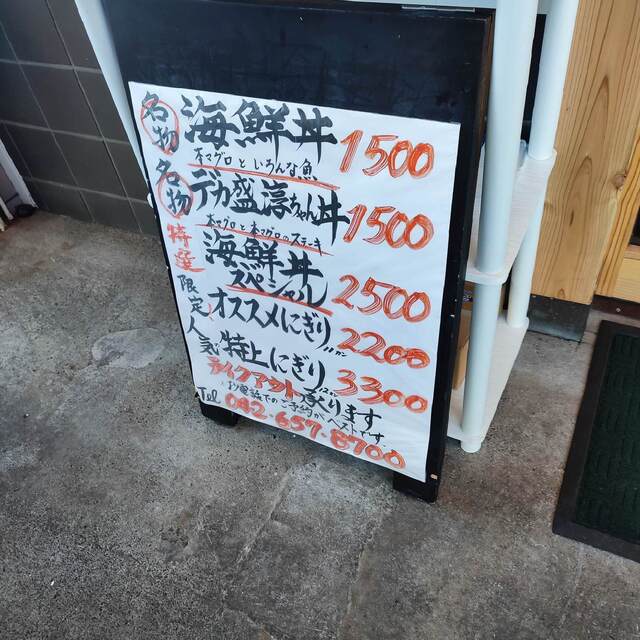 名物 海鮮丼 1500
本マグロといろんな魚
名物 デカ盛淳ちゃん丼 1500
本マグロと本マグロのステーキ
特選 海鮮丼 2500
スペシャル
限定 オススメにぎり 11カン 2200
人気 特上にぎり 12カン 3300
テイクアウト承ります
お電話でのご予約がベストです
Tel 042-657-8700